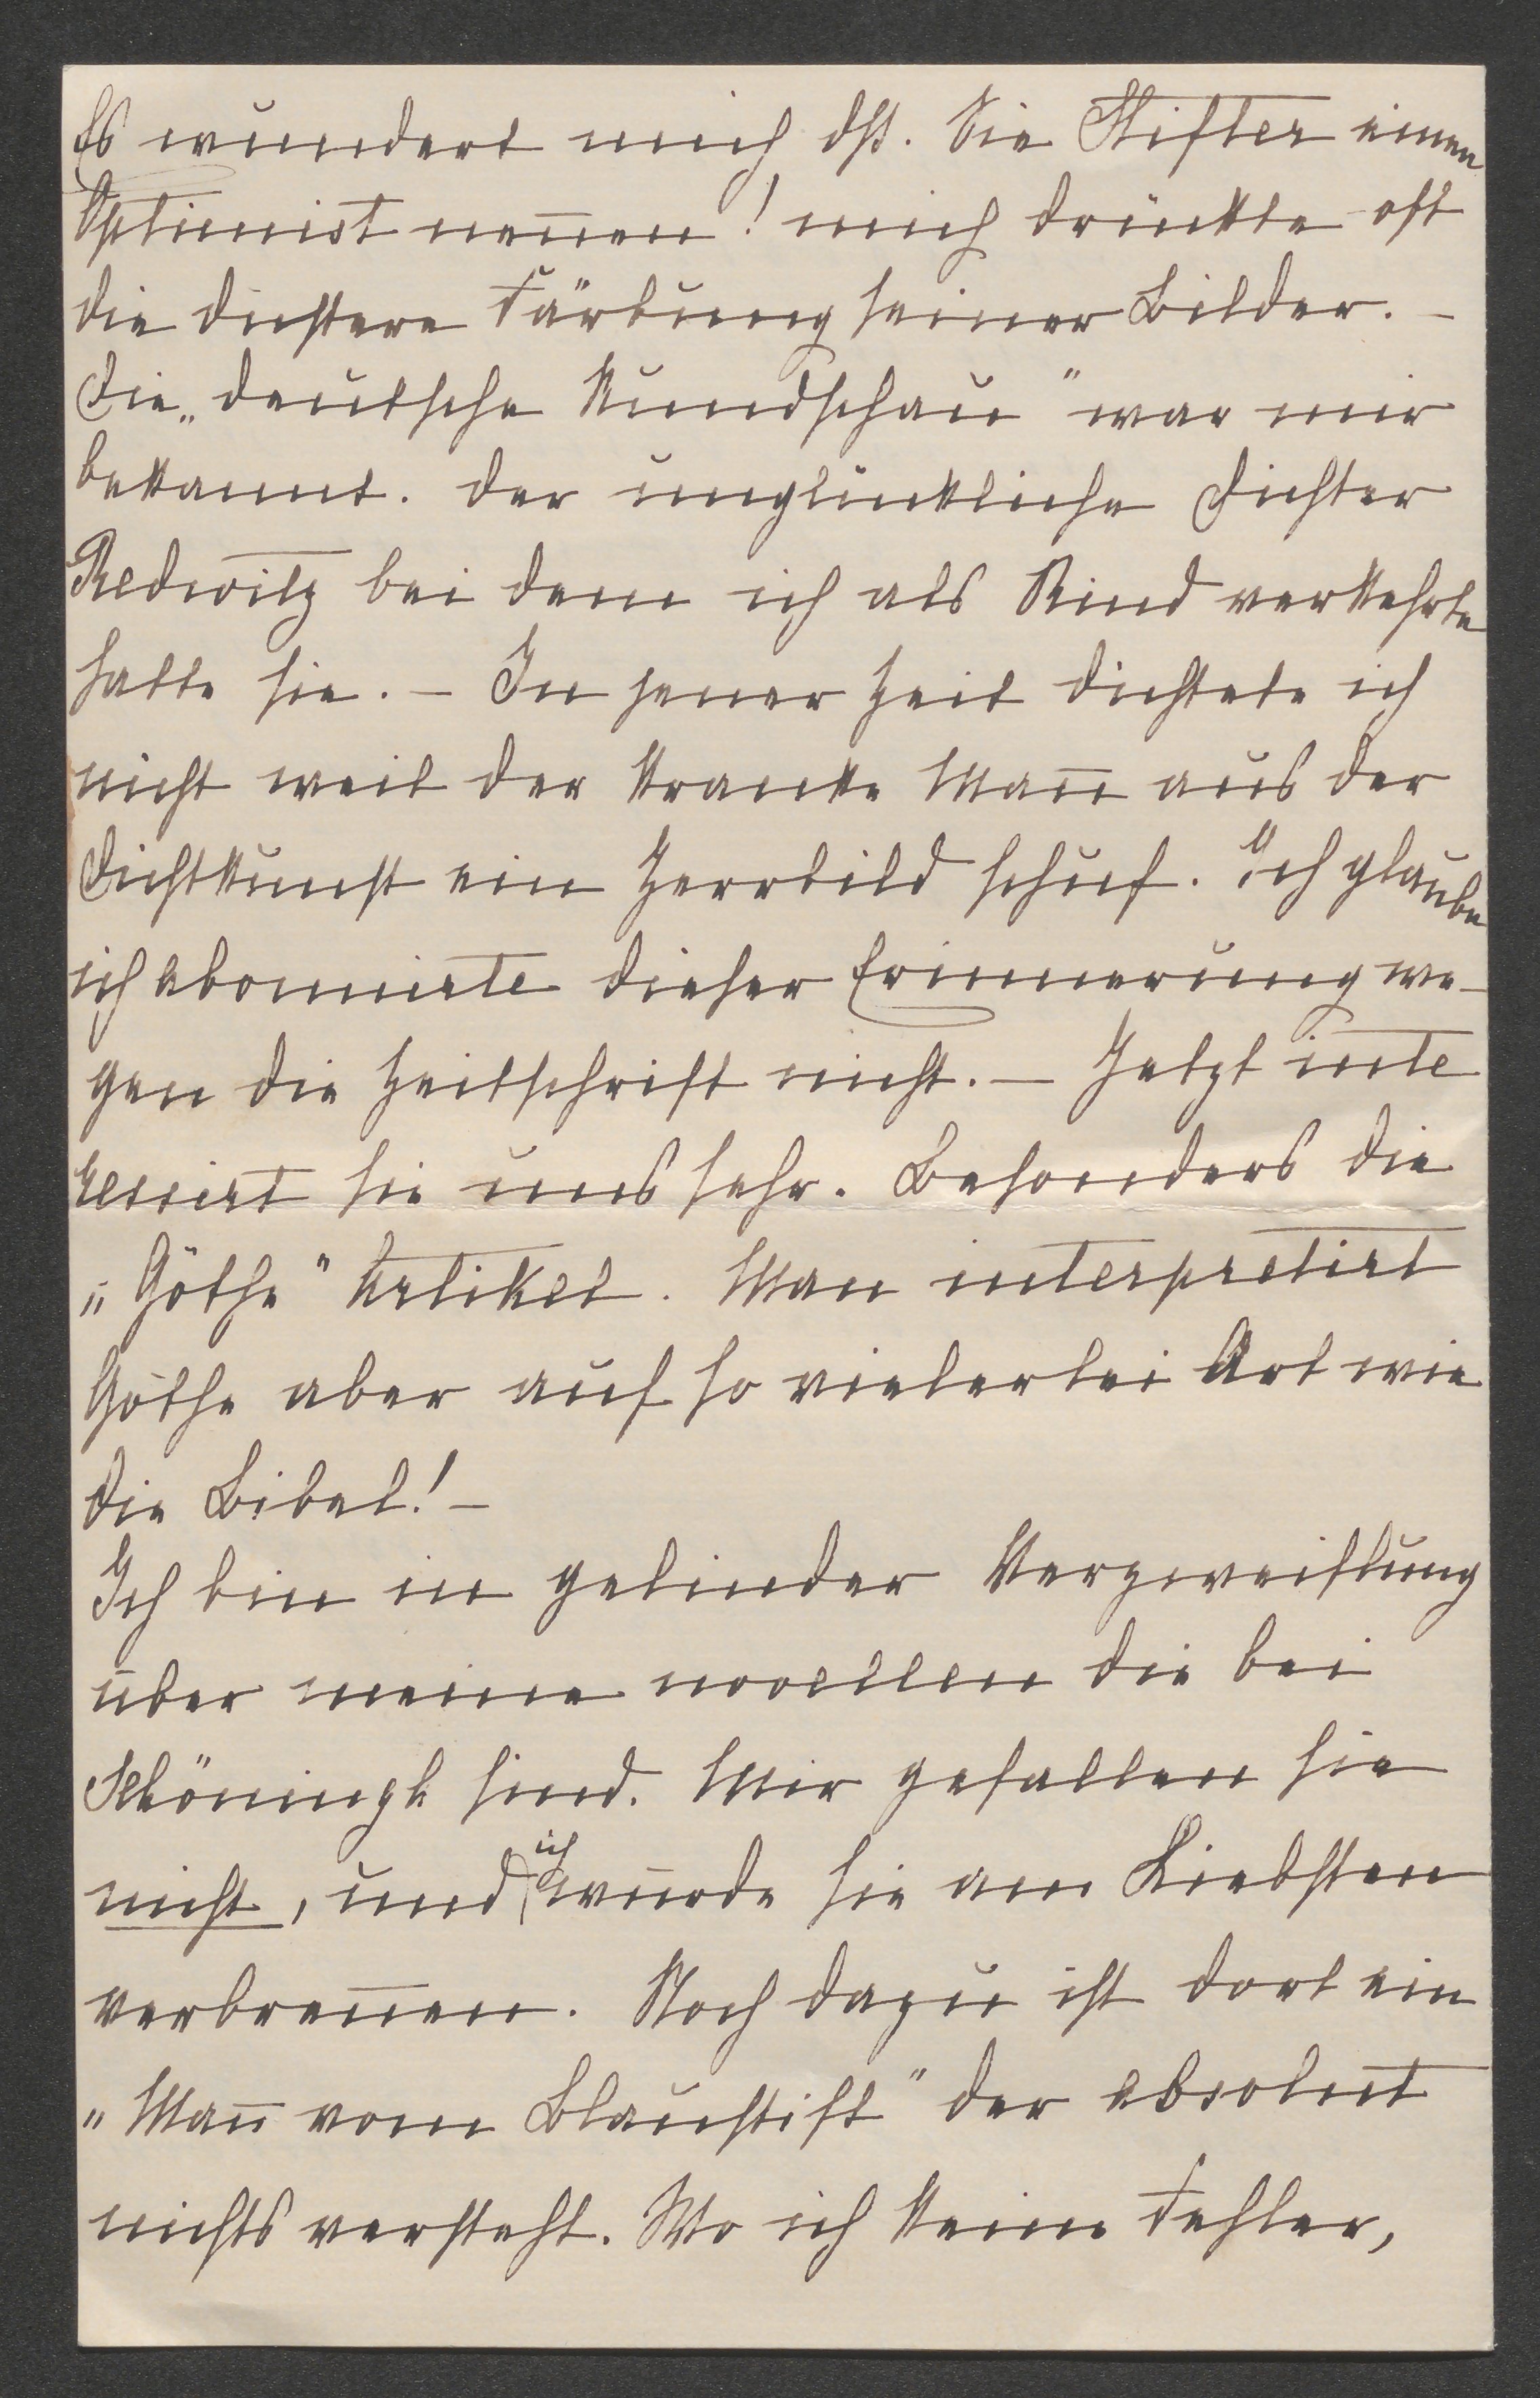 Es wundert mich dß. Sie Stifter einen
Optimist nen̄en! mich drückte oft
die düstere Färbung seiner Bilder. –
Die „deutsche Rundschau" war mir
bekannt. der unglückliche Dichter
Redwitz bei dem ich als Kind verkehrte
hatte sie. – In jener Zeit dichtete ich
nicht weil der kranke Man̄ aus der
Dichtkunst ein Zerrbild schuf. Ich glaube
ich abonnirte dieser Erinnerung we-
gen die Zeitschrift nicht. – Jetzt inte
ressirt sie uns sehr. Besonders die
„Göthe" Artikel. Man interpretirt
Göthe aber auf so vielerlei Art wie
die Bibel! –
Ich bin in gelinder Verzweiflung
über meine novellen die bei
Schöningh sind. Mir gefallen sie
nicht, und ich würde sie am Liebsten
verbren̄en. Noch dazu ist dort ein
„Man̄ vom Blaustift" der absolut
nichts versteht. Wo ich keine Fehler,